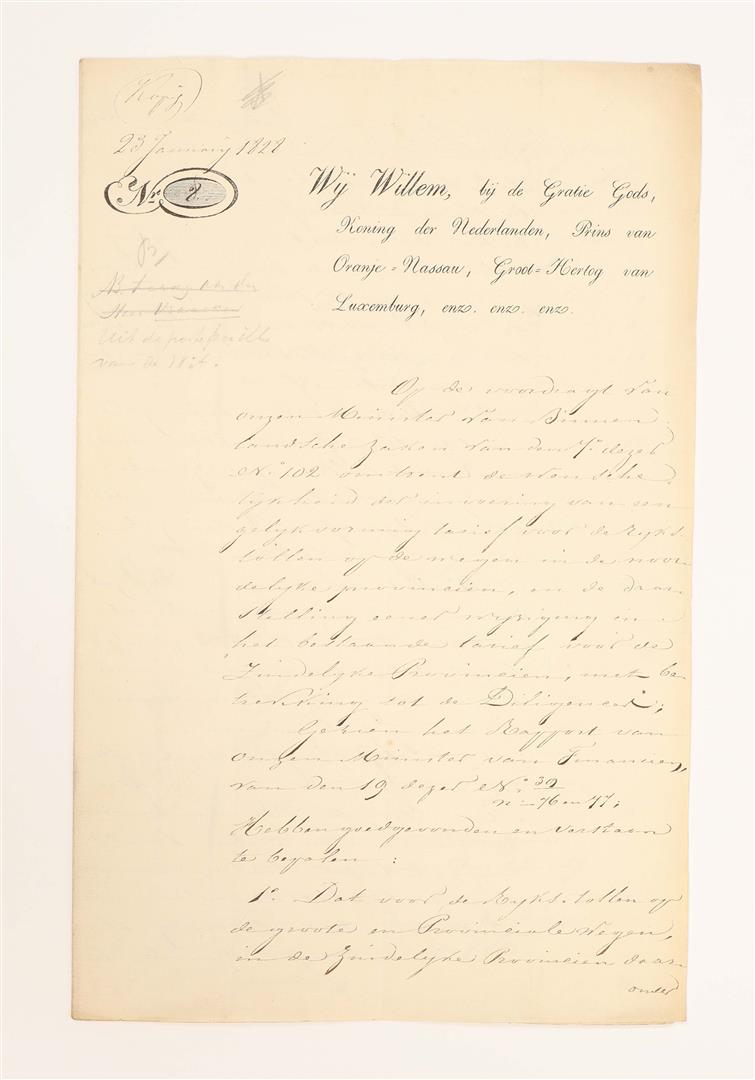 Kopij
23 January 1828
Nr. 8.
Wij Willem, bij de Gratie Gods,
Koning der Nederlanden, Prins van
Oranje=Nassau, Groot=Hertog van
Luxemburg, enz. enz. enz.
Uit de portefeuille
van de Wit.
Op de voordragt van
onzen Minister van Binnen
landsche Zaken van den 7e dezer
No 102 omtrent de wensche
lijkheid der invoering van een
gelykvormig tarief voor de Ryks
tollen op de wegen in de noor
delyke provincien, en de daar
stelling eener wyziging in
het bestaande tarief voor de
Zuidelyke Provincien, met be
trekking tot de Diligences;
Gezien het Rapport van
onzen Minister van Financien,
van den 19 dezer No 39
n - 76 en 77;
Hebben goedgevonden en verstaan
te bepalen :
1o. Dat voor de Ryks-tollen op
de groote en Provinciale wegen,
in de Zuidelyke Provincien daar
onder